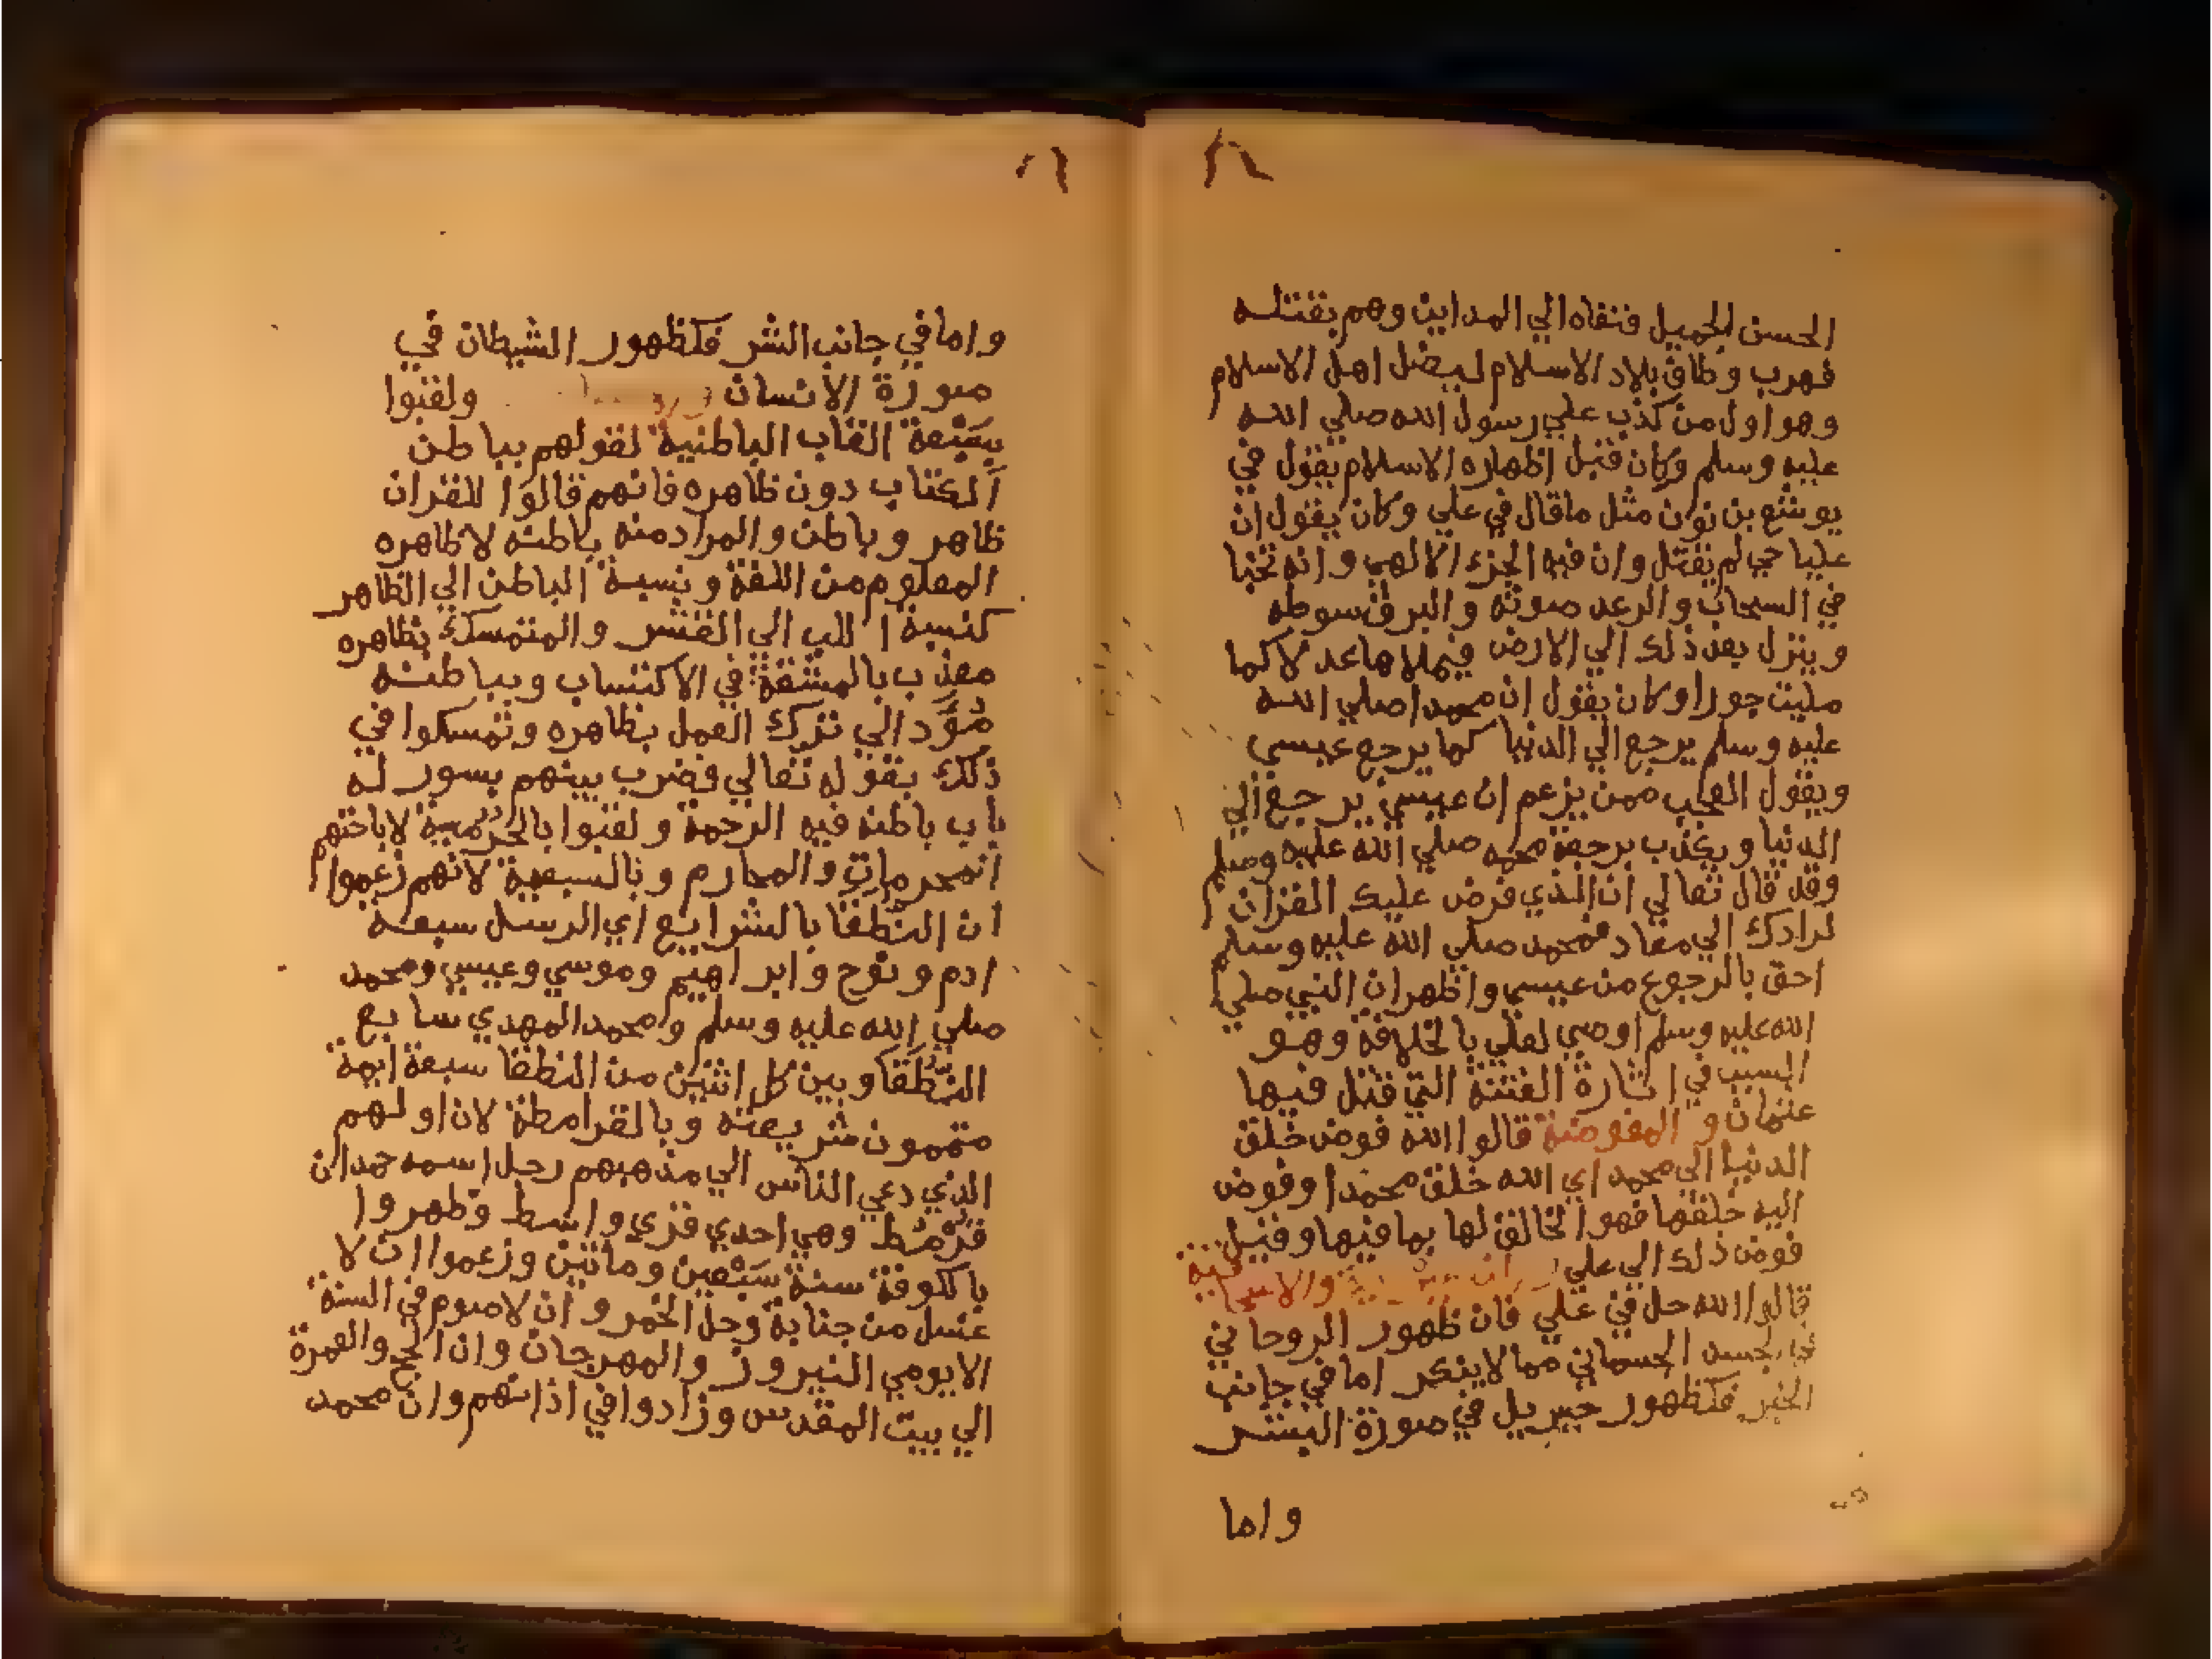 الحسن الجميل فنفاه الي المداين وهم بقتله
فهرب وطاف بلاد الاسلام ليضل اهل الاسلام
وهو اول من كذب علي رسول الله صلي الله
عليه وسلم وكان قبل اظهاره الاسلام يقول في
يوشع بن نون مثل ما قال في علي وكان يقول ان
عليا حي لم يقتل وان فيه الجزء الالهي وانه تحيا
في السحاب والرعد صوته والبرق سوطه
وينزل بعد ذلك الي الارض فيملاها عدلا كما
مليت جورا وكان يقول ان محمدا صلي الله
عليه وسلم يرجع الي الدنيا كما يرجع عيسي
ويقول العجب ممن يزعم ان عيسي يرجع الي
الدنيا ويكذب برجعة محمد صلي الله عليه وسلم
وقد قال تعالي ان الذي فرض عليك القران
لرادك الي معاد فمحمد صلي الله عليه وسلم
احق بالرجوع من عيسي واظهر ان النبي صلي
الله عليه وسلم اوصي لعلي بالخلافة وهو
السبب في اثارة الفتنة التي قتل فيها
عثمان و المفوضة قالوا الله فوض خلق
الدنيا الى محمد اي الله خلق محمدا وفوض
اليه خلقها فهو الخالق لها بما فيها وقيل
فوض ذلك الى علي والاسحاقية
قالوا الله حل في علي فان ظهور الروحاني
الجسد الجسماني مما لا ينكر اما في جانب
الخير فكظهور جبريل في صورة البشر
واما
واما في جانب الشر فكظهور الشيطان في
صورة الانسان ولقبوا
بسَبْعة القاب الباطنية لقولهم بباطن
الكتاب دون ظاهره فانهم قالوا للقران
ظاهر وباطن والمراد منه باطنه لا ظاهره
المعلوم من اللغة ونسبة الباطن الي الظاهر
كنسبة اللب الي القشر والمتمسك بظاهره
معذب بالمشقة في الاكتساب وبباطنه
مُؤَد الي ترك العمل بظاهره وتمسكوا في
ذلك بقوله تعالي فضرب بينهم بسور له
باب باطنه فيه الرحمة ولقبوا بالخُرّمية لاباحتهم
المحرمات والمحارم وبالسبعية لانهم زعموا
ان النطقا بالشرايع اي الرسل سبعة
ادم ونوح وابراهيم وموسي وعيسي ومحمد
صلي الله عليه وسلم ومحمد المهدي سابع
النُّطَقَا وبين كل اثنين من النطقا سبعة ايمة
متممون شريعته وبالقرامطة لان اولهم
الذي دعي الناس الي مذهبهم رجل اسمه حمدان
قرْمُط وهي احدي قري واسط وظهروا
باكلوفة سنة سَبْعين وماتين وزعموا ان لا
غسل من جنابة وحل الخمر وان لا صوم في السنة
الا يومي النيروز والمهرجان وان الحج والعمرة
الي بيت المقدس وزادوا في اذانهم وان محمد